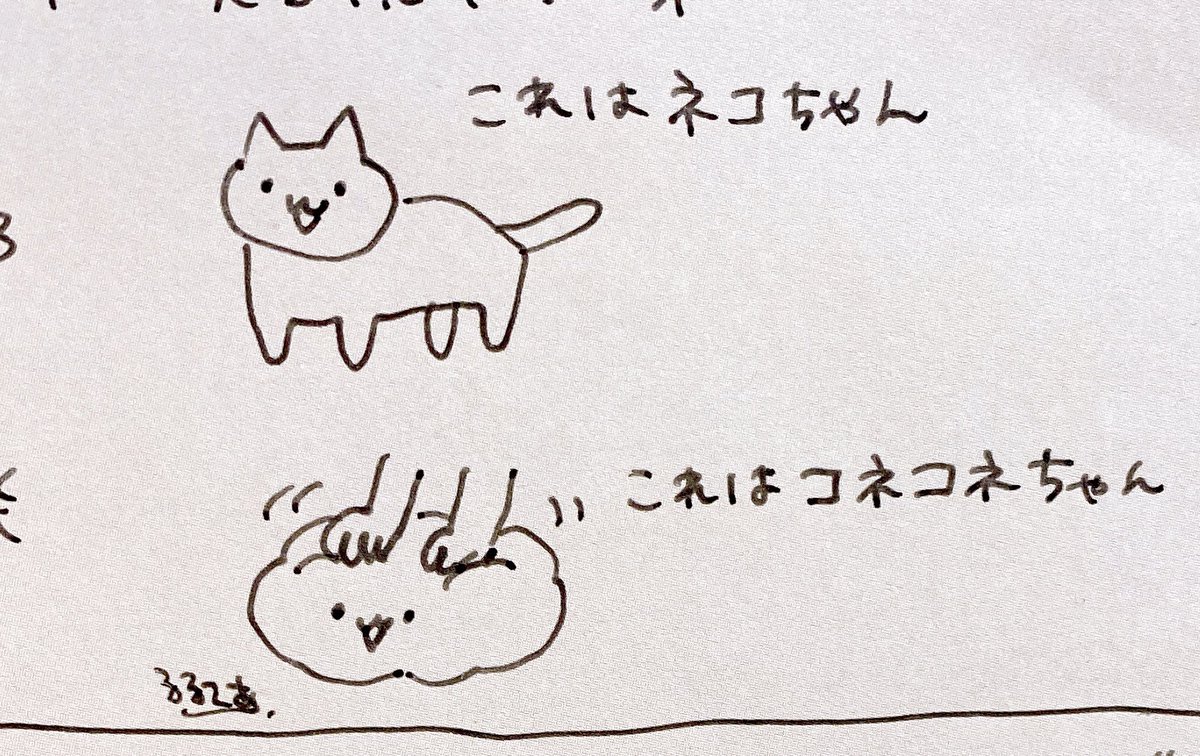 これはネコちゃん
これはコネコネちゃん